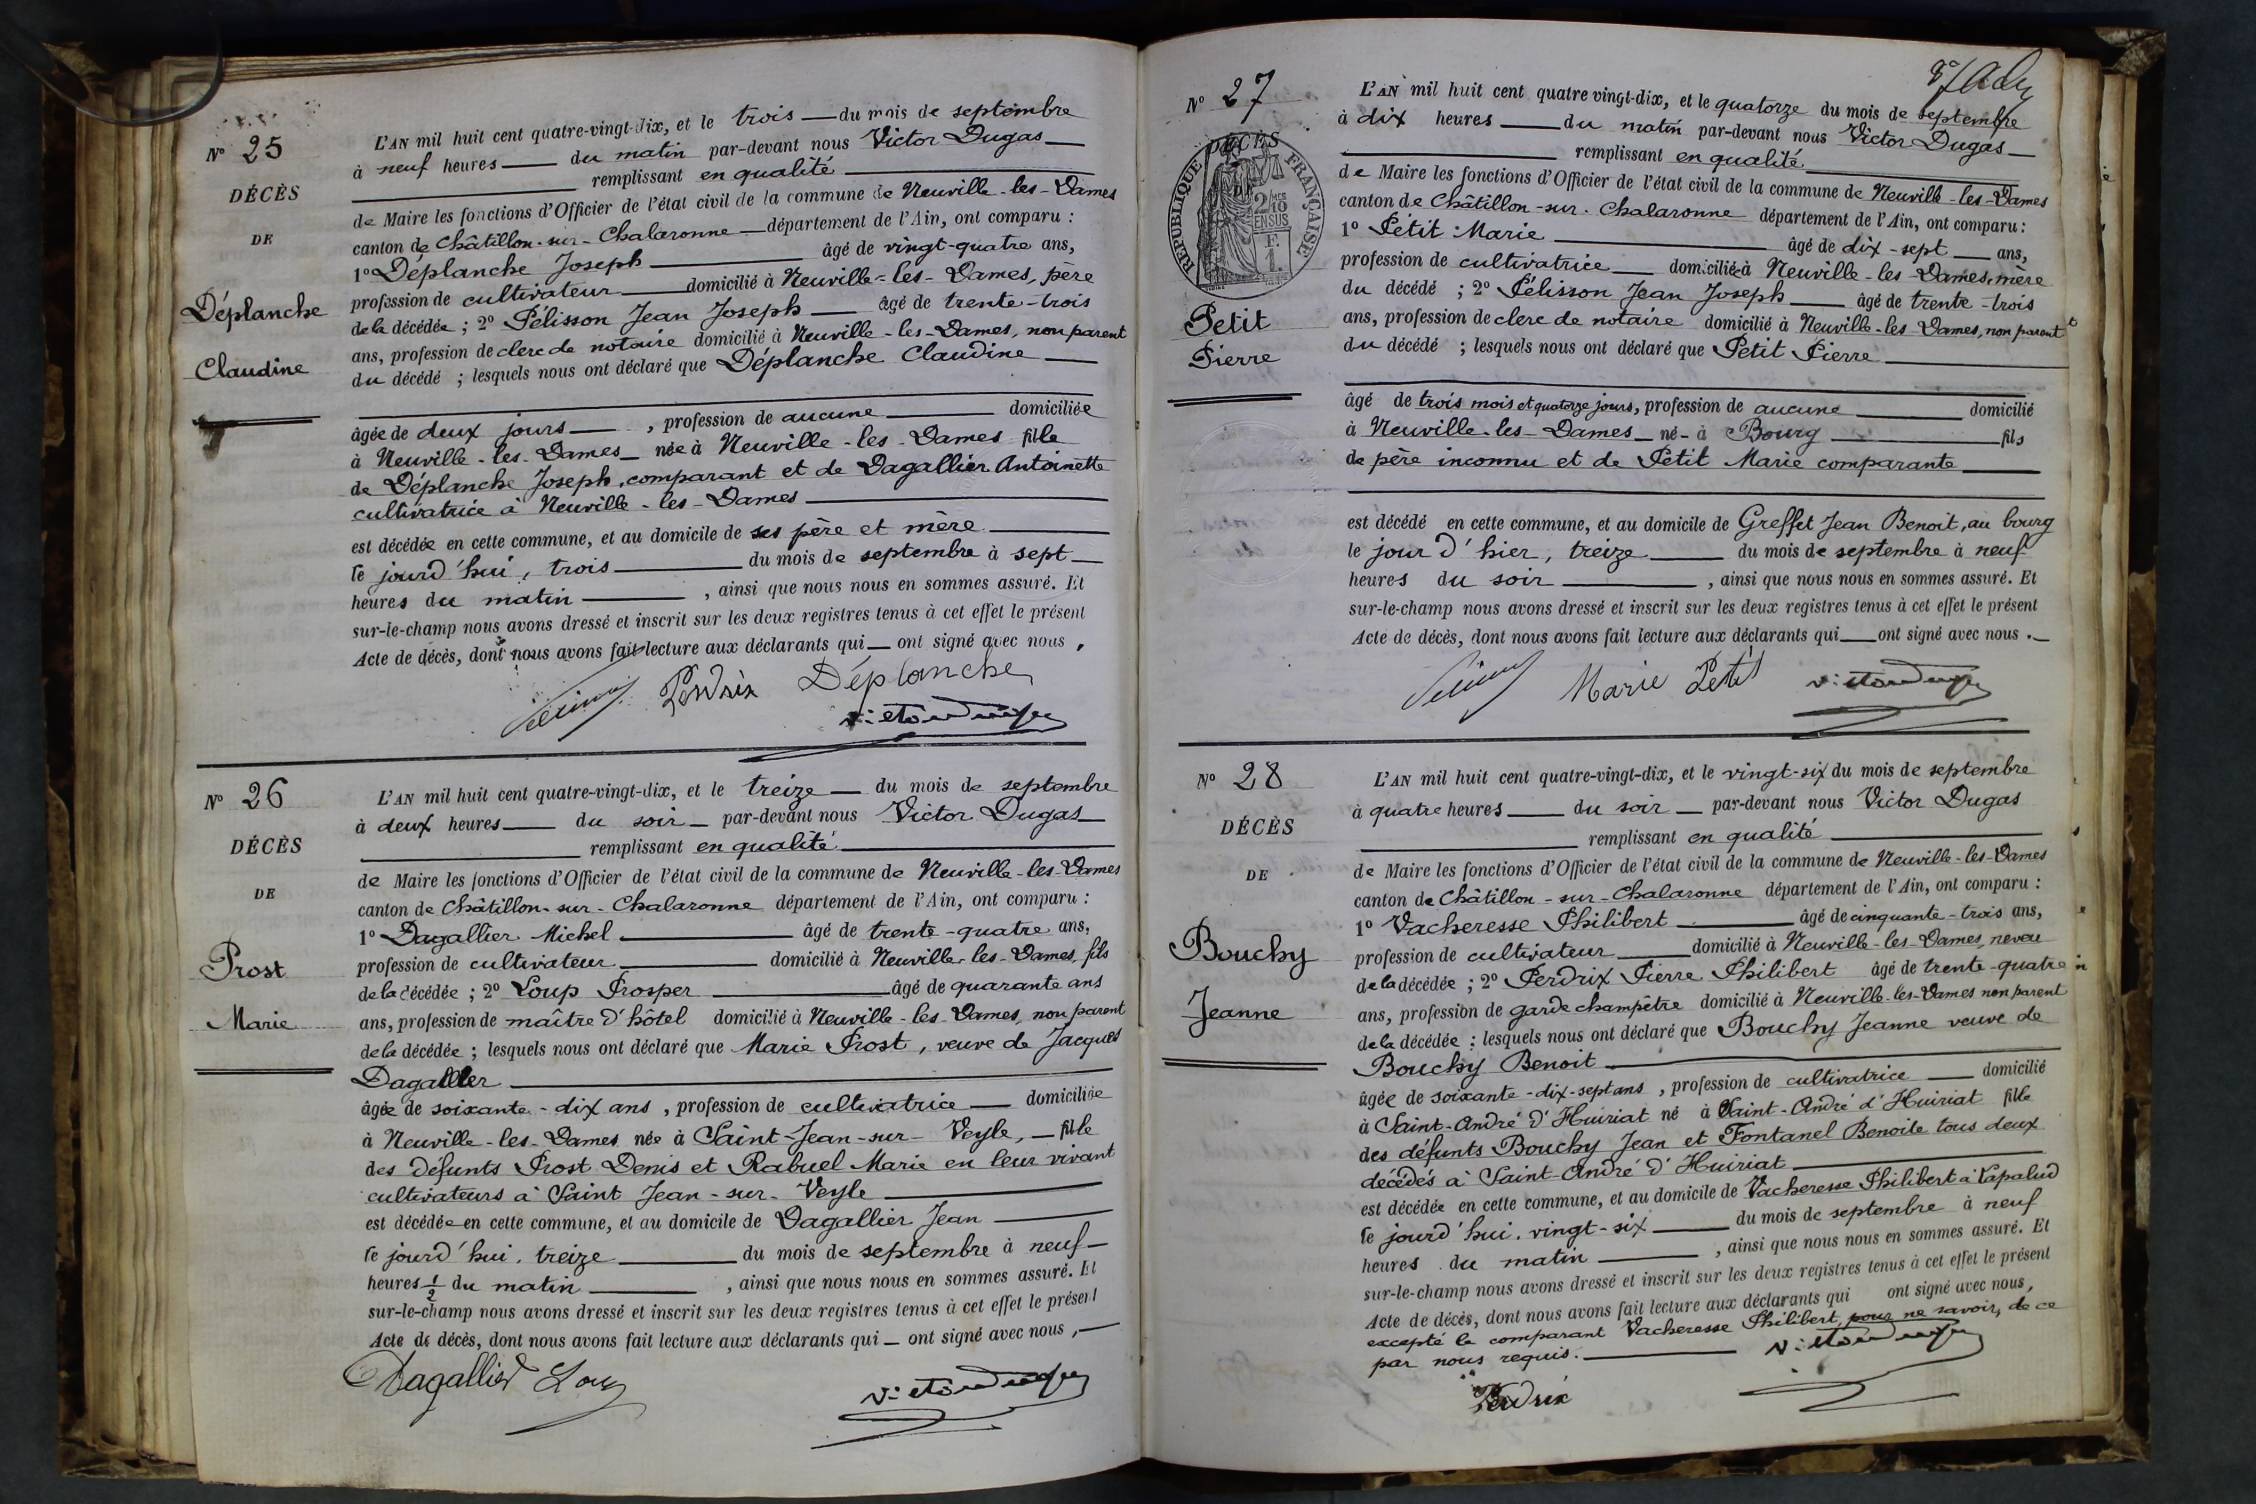 N° 25
DÉCÈS
DE
Déplanche
Claudine
L'AN mil huit cent quatre-vingt-dix, et le trois du mois de septembre
à neuf heures du matin par-devant nous Victor Dugas
remplissant en qualité
de Maire les fonctions d'Officier de l'état civil de la commune de Neuville-les-Dames
canton de Châtillon-sur-Chalaronne département de l'Ain, ont comparu :
1° Déplanche Joseph âgé de vingt-quatre ans,
profession de cultivateur domicilié à Neuville-les-Dames, père
de la décédée ; 2° Pélisson Jean Joseph âgé de trente-trois
ans, profession de clerc de notaire domicilié à Neuville-les-Dames, non parent
du décédé ; lesquels nous ont déclaré que Déplanche Claudine
âgée de deux jours , profession de aucune domiciliée
à Neuville-les-Dames née à Neuville-les-Dames fille
de Déplanche Joseph, comparant et de Dagallier Antoinette
cultivatrice à Neuville-les-Dames
est décédée en cette commune, et au domicile de ses père et mère
le jourd'hui, trois du mois de septembre à sept
heures du matin , ainsi que nous nous en sommes assuré. Et
sur-le-champ nous avons dressé et inscrit sur les deux registres tenus à cet effet le présent
Acte de décès, dont nous avons fait lecture aux déclarants qui ont signé avec nous,
Perdrix Déplanche
Victor Dugas
N° 26
DÉCÈS
DE
Prost
Marie
L'AN mil huit cent quatre-vingt-dix, et le treize du mois de septembre
à deux heures du soir par-devant nous Victor Dugas
remplissant en qualité
de Maire les fonctions d'Officier de l'état civil de la commune de Neuville-les-Dames
canton de Châtillon-sur-Chalaronne département de l'Ain, ont comparu :
1° Dagallier Michel âgé de trente-quatre ans,
profession de cultivateur domicilié à Neuville-les-Dames, fils
de la décédée ; 2° Loup Prosper âgé de quarante ans
ans, profession de maître d'hôtel domicilié à Neuville-les-Dames, non parent
de la décédée ; lesquels nous ont déclaré que Marie Prost, veuve de Jacques
Dagallier
âgée de soixante-dix ans , profession de cultivatrice domiciliée
à Neuville-les-Dames née à Saint-Jean-sur-Veyle, fille
des défunts Prost Denis et Rabuel Marie en leur vivant
cultivateurs à Saint Jean-sur-Veyle
est décédée en cette commune, et au domicile de Dagallier Jean
le jourd'hui, treize du mois de septembre à neuf
heures ½ du matin , ainsi que nous nous en sommes assuré. Et
sur-le-champ nous avons dressé et inscrit sur les deux registres tenus à cet effet le présent
Acte de décès, dont nous avons fait lecture aux déclarants qui ont signé avec nous,
Dagallier Loup
Victor Dugas
N° 27
DÉCÈS
RÉPUBLIQUE FRANÇAISE
2/10 MES
EN SUS
F.
1.
Petit
Pierre
L'AN mil huit cent quatre vingt-dix, et le quatorze du mois de septembre
à dix heures du matin par-devant nous Victor Dugas
remplissant en qualité
de Maire les fonctions d'Officier de l'état civil de la commune de Neuville-les-Dames
canton de Châtillon-sur-Chalaronne département de l'Ain, ont comparu :
1° Petit Marie âgé de dix-sept ans,
profession de cultivatrice domiciliée à Neuville-les-Dames, mère
du décédé ; 2° Pélisson Jean Joseph âgé de trente-trois
ans, profession de clerc de notaire domicilié à Neuville-les-Dames, non parent
du décédé ; lesquels nous ont déclaré que Petit Pierre
âgé de trois mois et quatorze jours, profession de aucune domicilié
à Neuville-les-Dames né à Bourg fils
de père inconnu et de Petit Marie comparante
est décédé en cette commune, et au domicile de Greffet Jean Benoit, au bourg
le jour d'hier, treize du mois de septembre à neuf
heures du soir , ainsi que nous nous en sommes assuré. Et
sur-le-champ nous avons dressé et inscrit sur les deux registres tenus à cet effet le présent
Acte de décès, dont nous avons fait lecture aux déclarants qui ont signé avec nous.
Marie Petit Victor Dugas
N° 28
DÉCÈS
DE
Bouchy
Jeanne
L'AN mil huit cent quatre-vingt-dix, et le vingt-six du mois de septembre
à quatre heures du soir par-devant nous Victor Dugas
remplissant en qualité
de Maire les fonctions d'Officier de l'état civil de la commune de Neuville-les-Dames
canton de Châtillon-sur-Chalaronne département de l'Ain, ont comparu :
1° Vacheresse Philibert âgé de cinquante-trois ans,
profession de cultivateur domicilié à Neuville-les-Dames, neveu
de la décédée ; 2° Perdrix Pierre Philibert âgé de trente-quatre
ans, profession de garde champêtre domicilié à Neuville-les-Dames non parent
de la décédée ; lesquels nous ont déclaré que Bouchy Jeanne veuve de
Bouchy Benoit
âgée de soixante-dix-sept ans , profession de cultivatrice domicilié
à Saint-André d'Huiriat né à Saint-André d'Huiriat fille
des défunts Bouchy Jean et Fontanel Benoite tous deux
décédés à Saint-André d'Huiriat
est décédée en cette commune, et au domicile de Vacheresse Philibert à Vapalud
le jourd'hui, vingt-six du mois de septembre à neuf
heures du matin , ainsi que nous nous en sommes assuré. Et
sur-le-champ nous avons dressé et inscrit sur les deux registres tenus à cet effet le présent
Acte de décès, dont nous avons fait lecture aux déclarants qui ont signé avec nous,
excepté le comparant Vacheresse Philibert, pour ne savoir, de ce
par nous requis.
Victor Dugas
Perdrix